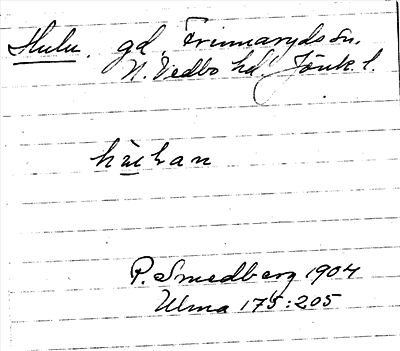 Hulu. gd, Frinnaryds sn.
N. Vedbo hd. Jönk. l.
P. Smedberg 1904
Ulma 175:205